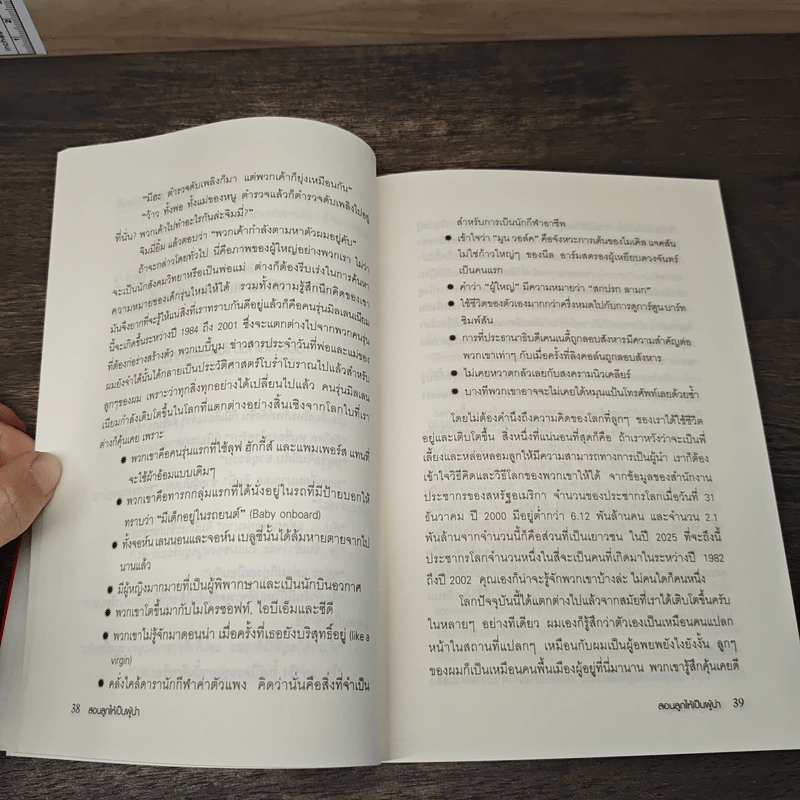 "มีฮะ ตำรวจดับเพลิงก็มา แต่พวกเค้าก็ยุ่งเหมือนกัน"
"ว้าว ทั้งพ่อ ทั้งแม่ของหนู ตำรวจแล้วก็ตำรวจดับเพลิงไปอยู่
ที่นั่น? พวกเค้าไปทำอะไรกันล่ะจิมมี่?"
จิมมี่ยิ้ม แล้วตอบว่า "พวกเค้ากำลังตามหาตัวผมอยู่คับ"
ถ้าจะกล่าวโดยทั่วไป นี่คือภาพของผู้ใหญ่อย่างพวกเรา ไม่ว่า
จะเป็นนักสังคมวิทยาหรือเป็นพ่อแม่ ต่างก็ต้องรีบเร่งในการค้นหา
ความหมายของเด็กรุ่นใหม่ให้ได้ รวมทั้งความรู้สึกนึกคิดของเขา
มันจึงยากที่จะรู้ให้แน่สิ่งที่เราทราบกันดีอยู่แล้วก็คือคนรุ่นมิลเลนเนียม
นี้จะเกิดขึ้นระหว่างปี 1984 ถึง 2001 ซึ่งจะแตกต่างไปจากพวกคนรุ่น
ที่ต้องก่อร่างสร้างตัว พวกเบบี้บูม ข่าวสารประจำวันที่พ่อและแม่ของ
ผมยังจำได้นั้นได้กลายเป็นประวัติศาสตร์โบร่ำโบราณไปแล้วสำหรับ
ลูกๆของผม เพราะว่าทุกสิ่งทุกอย่างได้เปลี่ยนไปแล้ว คนรุ่นมิลเลน
เนียมกำลังเติบโตขึ้นในโลกที่แตกต่างอย่างสิ้นเชิงจากโลกใบที่เรา
ต่างก็คุ้นเคย เพราะ
● พวกเขาคือคนรุ่นแรกที่ใช้ลุฟ ฮักกี้ส์ และแพมเพอร์ส แทนที่
จะใช้ผ้าอ้อมแบบเดิมๆ
● พวกเขาคือทารกกลุ่มแรกที่ได้นั่งอยู่ในรถที่มีป้ายบอกให้
ทราบว่า "มีเด็กอยู่ในรถยนต์" (Baby onboard)
● ทั้งจอห์น เลนนอนและจอห์น เบลูชี่นั้นได้ล้มหายตายจากไป
นานแล้ว
● มีผู้หญิงมากมายที่เป็นผู้พิพากษาและเป็นนักบินอวกาศ
● พวกเขาโตขึ้นมากับไมโครซอฟท์, ไอบีเอ็มและซีดี
● พวกเขาไม่รู้จักมาดอนน่า เมื่อครั้งที่เธอยังบริสุทธิ์อยู่ (like a
virgin)
● คลั่งไคล้ดารานักกีฬาค่าตัวแพง คิดว่านั่นคือสิ่งที่จำเป็น
38 สอนลูกให้เป็นผู้นำ
สำหรับการเป็นนักกีฬาอาชีพ
● เข้าใจว่า "มูน วอล์ค" คือจังหวะการเต้นของไมเคิล แจคสัน
ไม่ใช่ก้าวใหญ่ๆ ของนีล อาร์มสตรองผู้เหยียบดวงจันทร์
เป็นคนแรก
● คำว่า "ผู้ใหญ่" มีความหมายว่า "สกปรก ลามก"
● ใช้ชีวิตของตัวเองมากกว่าครึ่งหมดไปกับการดูการ์ตูนบาร์ท
ซิมพ์สัน
● การที่ประธานาธิบดีเคนเนดี้ถูกลอบสังหารมีความสำคัญต่อ
พวกเขาเท่าๆ กับเมื่อครั้งที่ลิงคอล์นถูกลอบสังหาร
● ไม่เคยหวาดกลัวเลยกับสงครามนิวเคลียร์
● บางทีพวกเขาอาจจะไม่เคยได้หมุนแป้นโทรศัพท์เลยด้วยซ้ำ
โดยไม่ต้องคำนึงถึงความคิดของโลกที่ลูกๆ ของเราได้ใช้ชีวิต
อยู่และเติบโตขึ้น สิ่งหนึ่งที่แน่นอนที่สุดก็คือ ถ้าเราหวังว่าจะเป็นพี่
เลี้ยงและหล่อหลอมลูกให้มีความสามารถทางการเป็นผู้นำ เราก็ต้อง
เข้าใจวิธีคิดและวิถีโลกของพวกเขาให้ได้ จากข้อมูลของสำนักงาน
ประชากรของสหรัฐอเมริกา จำนวนของประชากรโลกเมื่อวันที่ 31
ธันวาคม ปี 2000 มีอยู่ต่ำกว่า 6.12 พันล้านคน และจำนวน 2.1
พันล้านจากจำนวนนี้ก็คือส่วนที่เป็นเยาวชน ในปี 2025 ที่จะถึงนี้
ประชากรโลกจำนวนหนึ่งในสี่จะเป็นคนที่เกิดมาในระหว่างปี 1982
ถึงปี 2002 คุณเองก็น่าจะรู้จักพวกเขาบ้างล่ะ ไม่คนใดก็คนหนึ่ง
โลกปัจจุบันนี้ได้แตกต่างไปแล้วจากสมัยที่เราได้เติบโตขึ้นครับ
ในหลายๆ อย่างทีเดียว ผมเองก็รู้สึกว่าตัวเองเป็นเหมือนคนแปลก
หน้าในสถานที่แปลกๆ เหมือนกับผมเป็นผู้อพยพยังไงยังงั้น ลูกๆ
ของผมก็เป็นเหมือนคนพื้นเมืองผู้อยู่ที่นี่มานาน พวกเขารู้สึกคุ้นเคยดี
สอนลูกให้เป็นผู้นำ 39